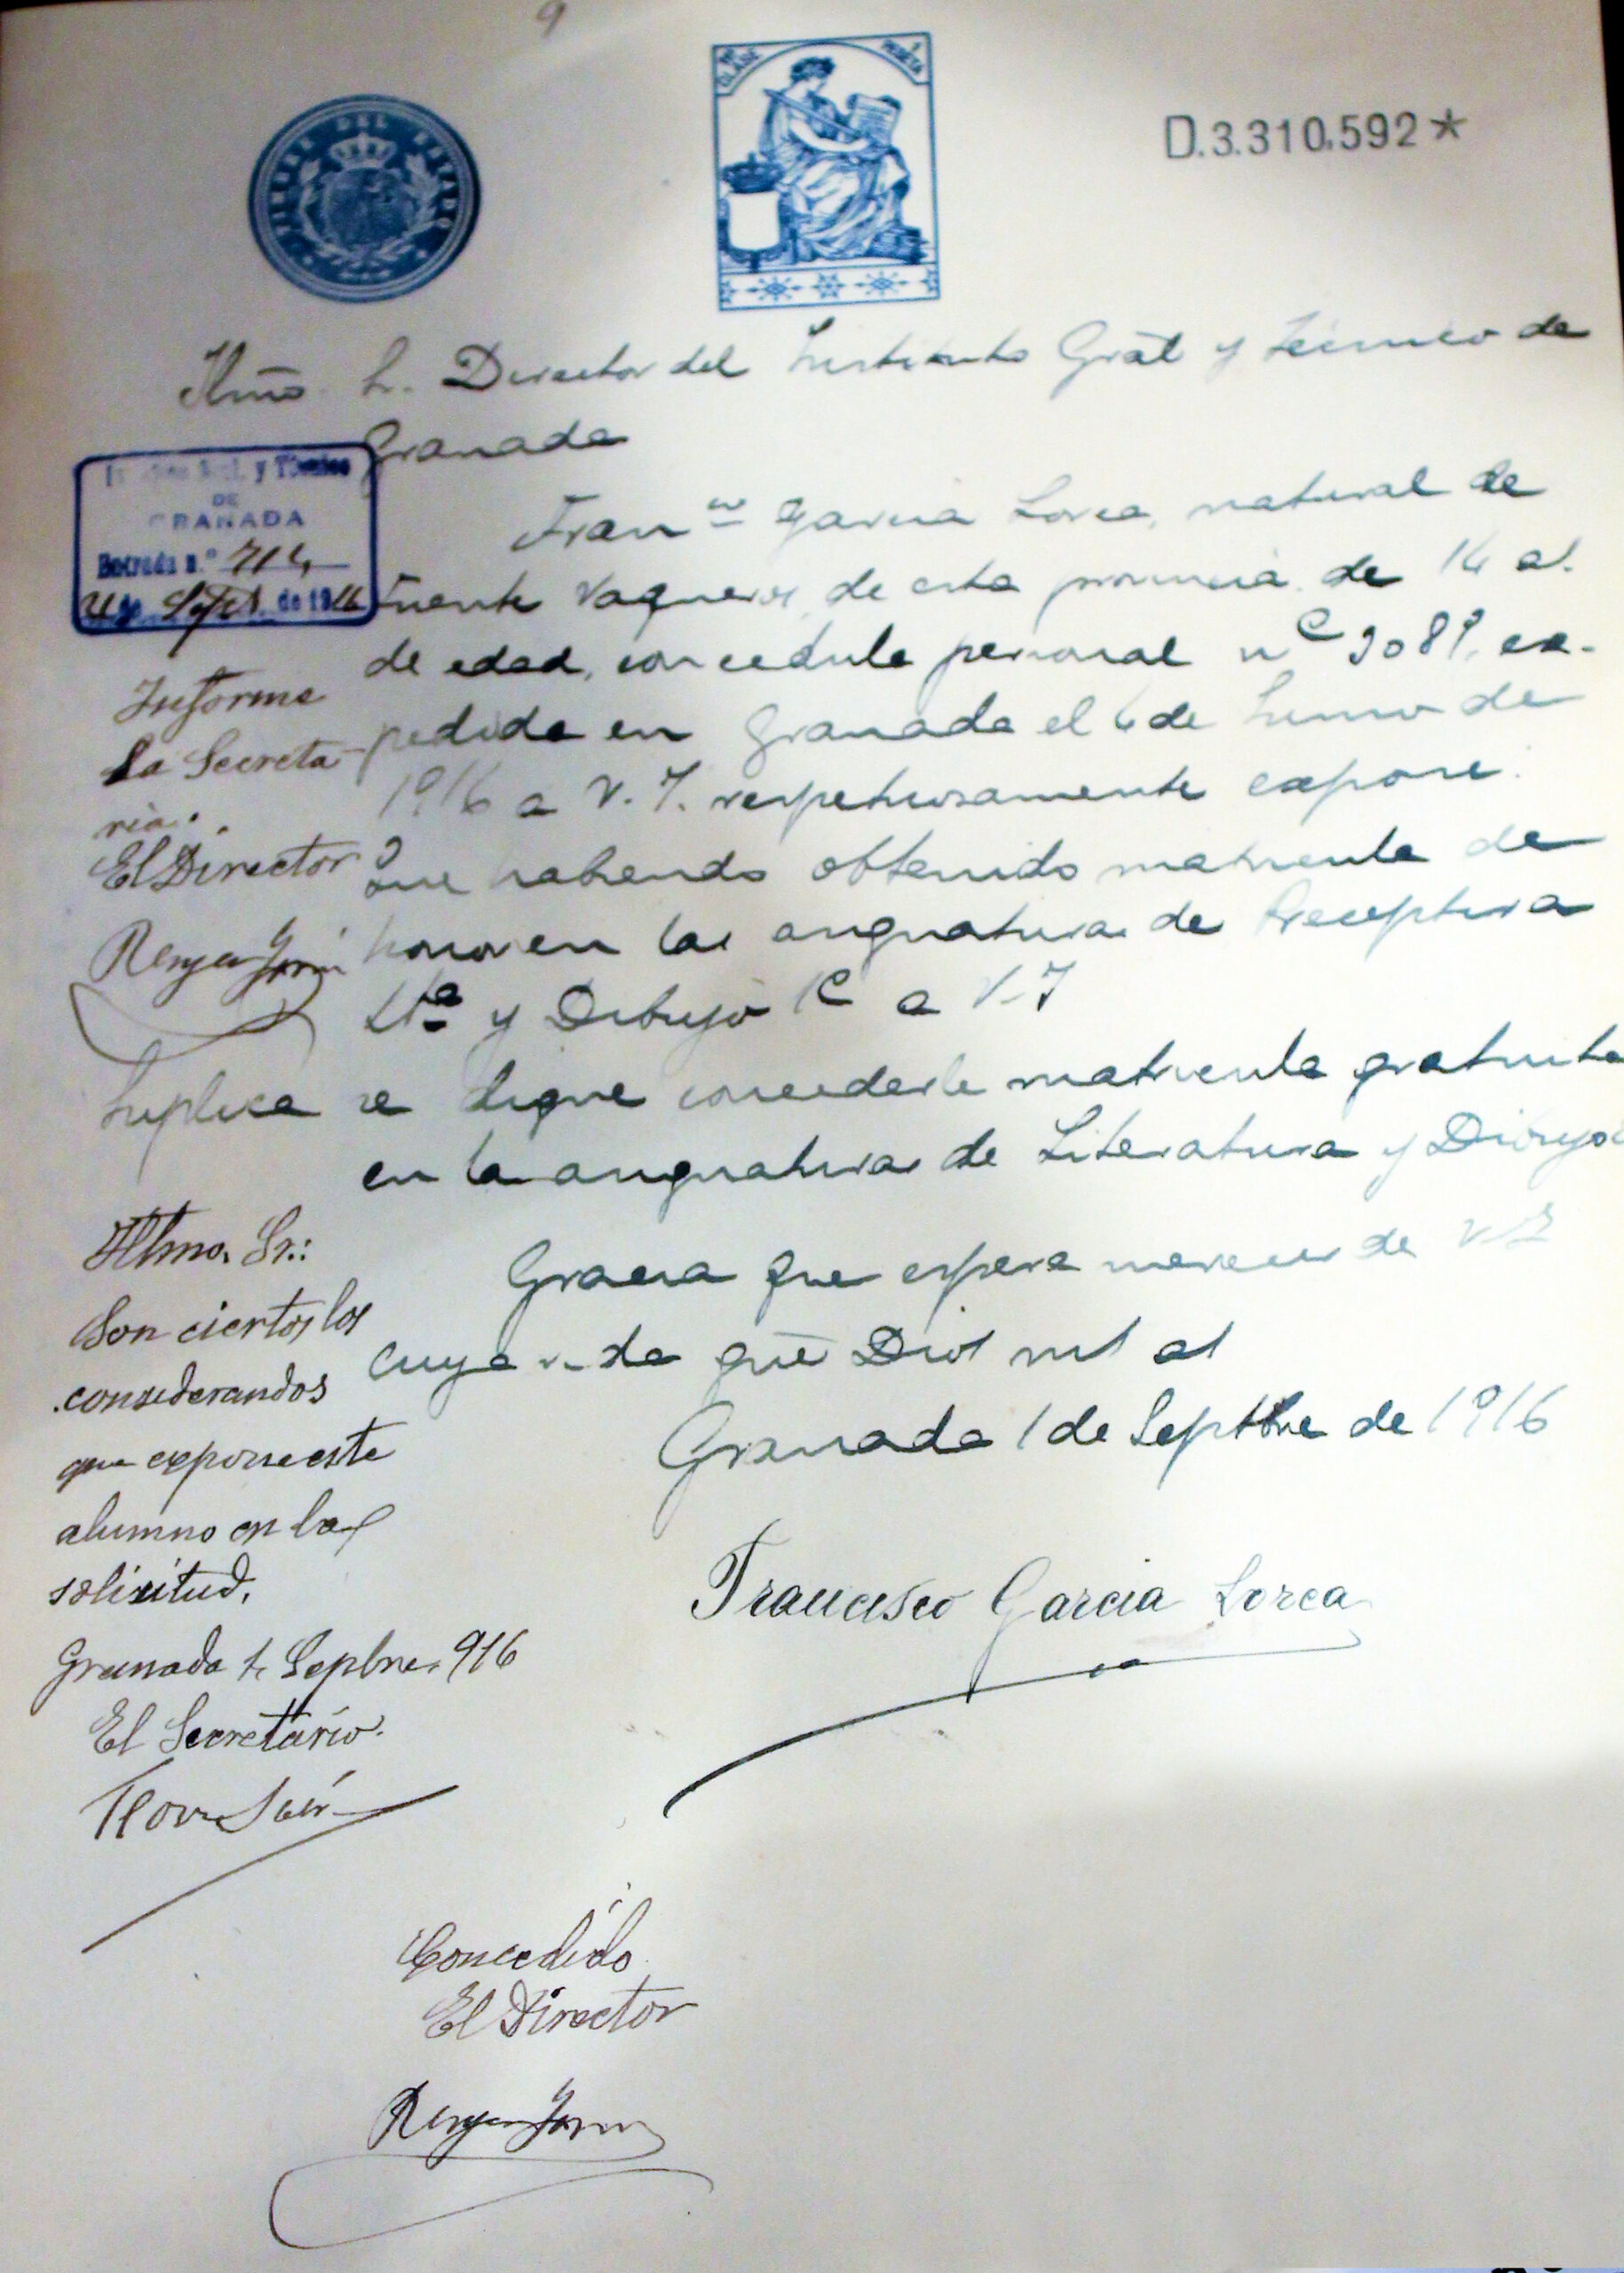 9
TIMBRE DEL ESTADO
CLASE
PESETA
D.3.310.592*
Ilmo. Sr. Director del Instituto Gral y Técnico de
Granada
y Técnico
DE
GRANADA
Entrada n.º
de Sept. de 1916
Franco García Lorca, natural de
Fuente Vaqueros, de esta provincia de 14 as.
de edad, con cedula personal nº 9089, ex-
pedida en Granada el 6 de Junio de
1916 a V. I. respetuosamente expone:
Que habiendo obtenido matricula de
honor en las asignaturas de Preceptiva
Ltª y Dibujo 1º a V. I
Suplica se digne concederle matricula gratuita
en la asignaturas de Literatura y Dibujo
Gracia que espera merecer de V. I
cuya vida gue Dios ms as
Granada 1 de Septbre de 1916
Francisco García Lorca
Informe
la Secreta-
ria.
El Director
Iltmo. Sr.:
Son ciertos los
considerandos
que expone este
alumno en la
solicitud.
Granada 1 Sepbre. 916
El Secretario.
Concedido
El Director